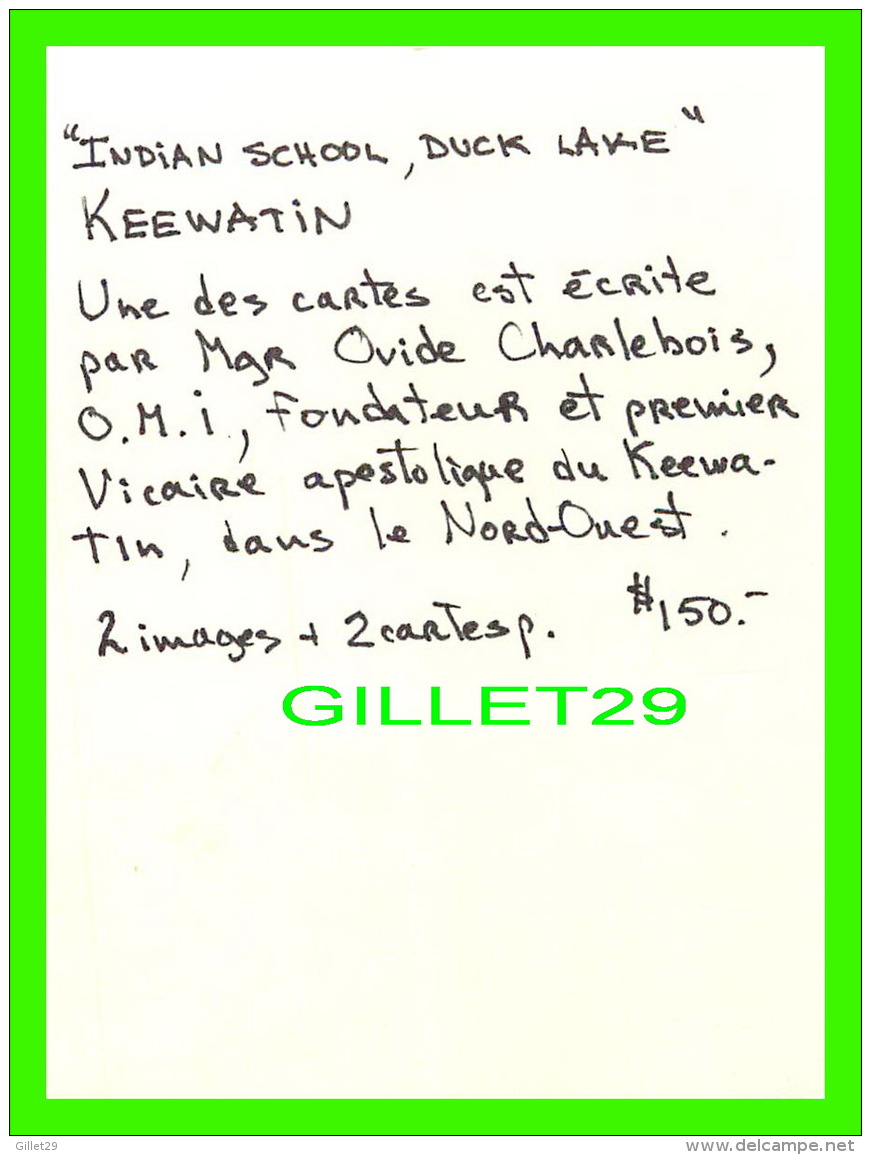 "INDIAN SCHOOL, DUCK LAKE"
KEEWATIN
Une des cartes est écrite
par Mgr Ovide Charlebois,
O.M.i., fondateur et premier
Vicaire apostolique du Keewa-
tin, dans le Nord-Ouest.
2 images + 2 cartes p. $150.-
GILLET29
Gillet29 www.delcampe.net